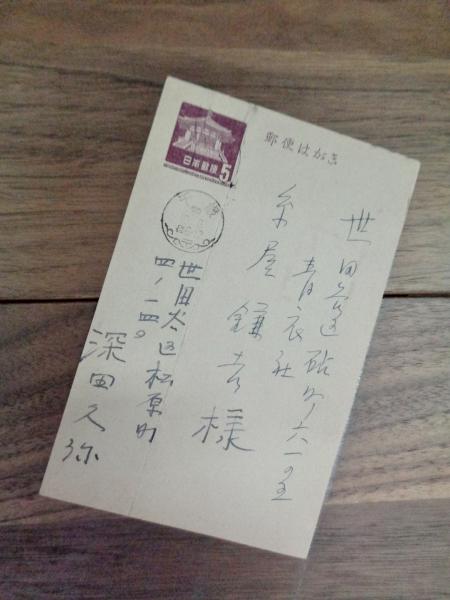 郵便はがき
日本郵便
5
世田谷区砧町六一の五
青衣社
糸屋鎌吉様
世田谷区松原町
四ノ一四〇
深田久弥